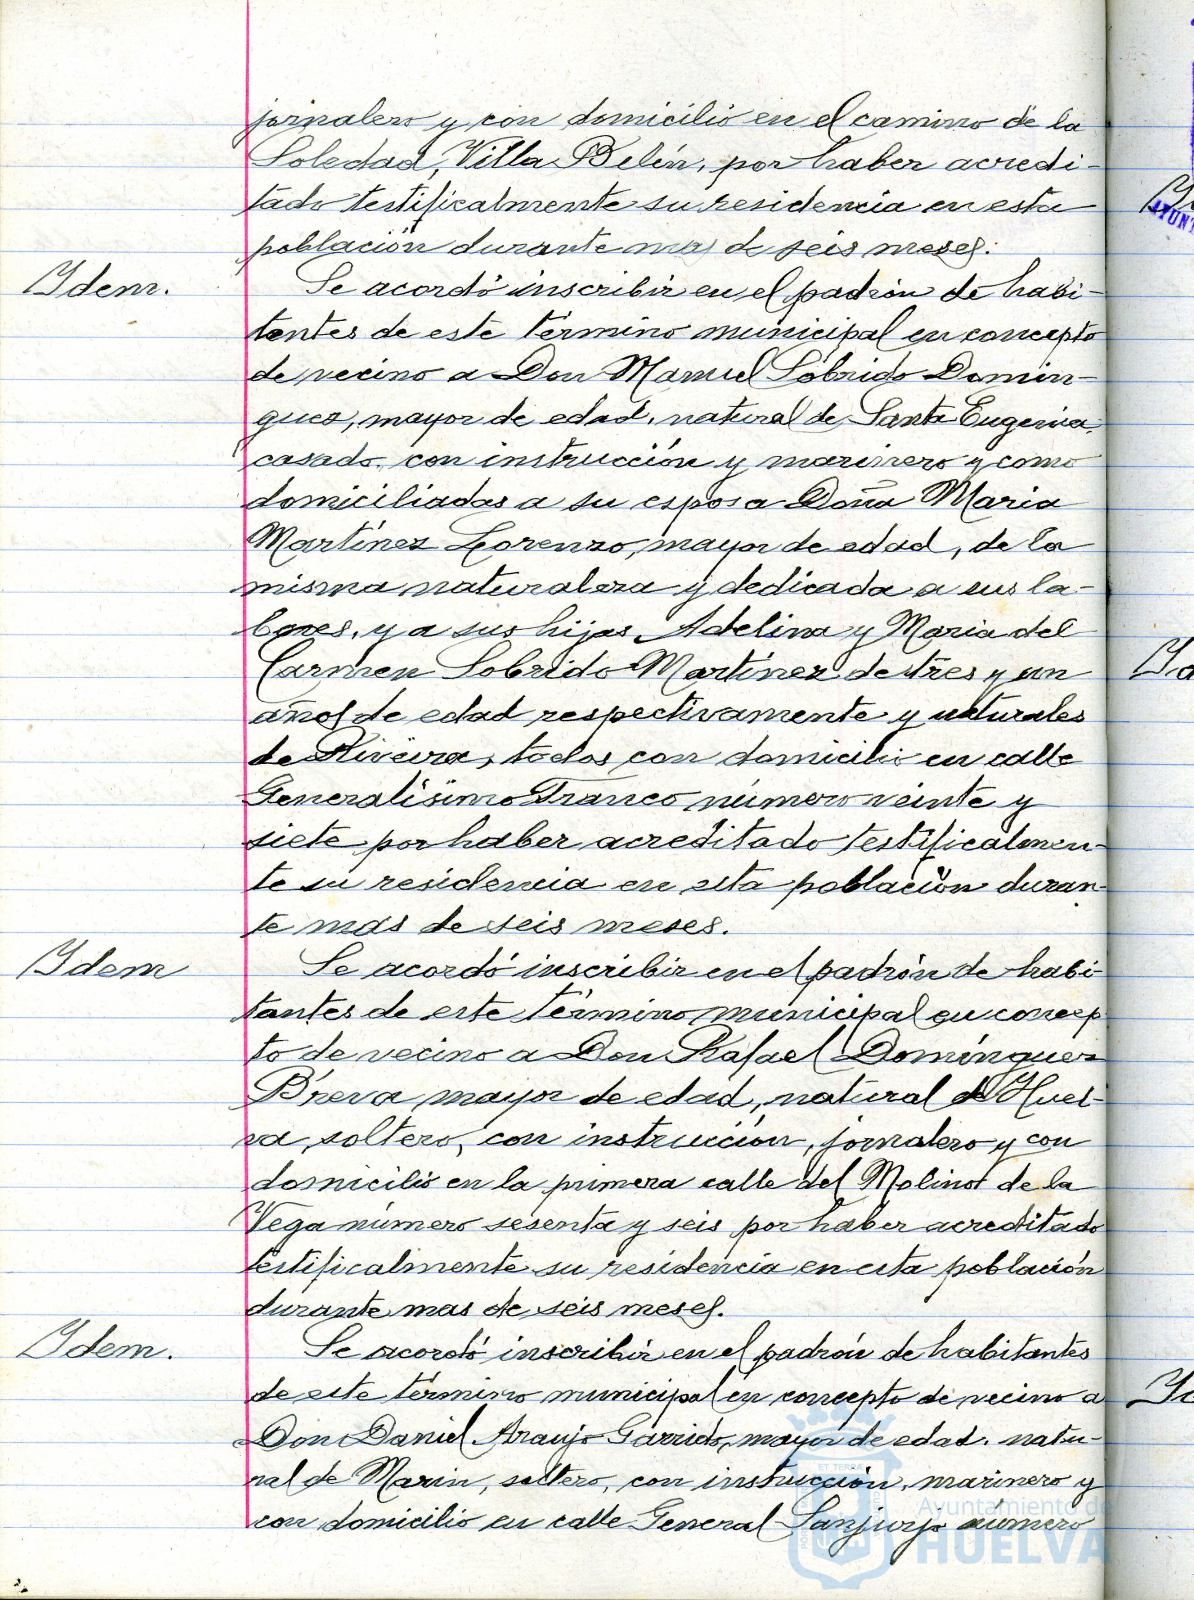 jornalero y con domicilio en el camino de la
Soledad, Villa Belén, por haber acredi-
tado testificalmente su residencia en esta
población durante mas de seis meses.
Idem.
Se acordó inscribir en el padrón de habi-
tentes de este término municipal en concepto
de vecino a Don Manuel Sobrido Domin-
guez, mayor de edad, natural de Santa Eugenia,
casado, con instrucción y marinero y como
domiciliadas a su esposa Doña Maria
Martínez Lorenzo, mayor de edad, de la
misma naturaleza y dedicada a sus la-
bores, y a sus hijas Adelina y Maria del
Carmen Sobrido Martínez de tres y un
años de edad respectivamente y naturales
de Riveira, todos con domicilio en calle
Generalísimo Franco número veinte y
siete por haber acreditado testificalmen-
te su residencia en esta población duran-
te mas de seis meses.
Idem
Se acordó inscribir en el padrón de habi-
tantes de este término municipal en concep-
to de vecino a Don Rafael Domínguez
Breva, mayor de edad, natural de Huel-
va, soltero, con instrucción, jornalero y con
domicilio en la primera calle del Molino de la
Vega número sesenta y seis por haber acreditado
testificalmente su residencia en esta población
durante mas de seis meses.
Idem.
Se acordó inscribir en el padrón de habitantes
de este término municipal en concepto de vecino a
Don Daniel Araujo Garrido, mayor de edad, natu-
ral de Marin, soltero, con instrucción, marinero y
con domicilio en calle General Sanjurjo número
Ayuntamiento de
HUELVA